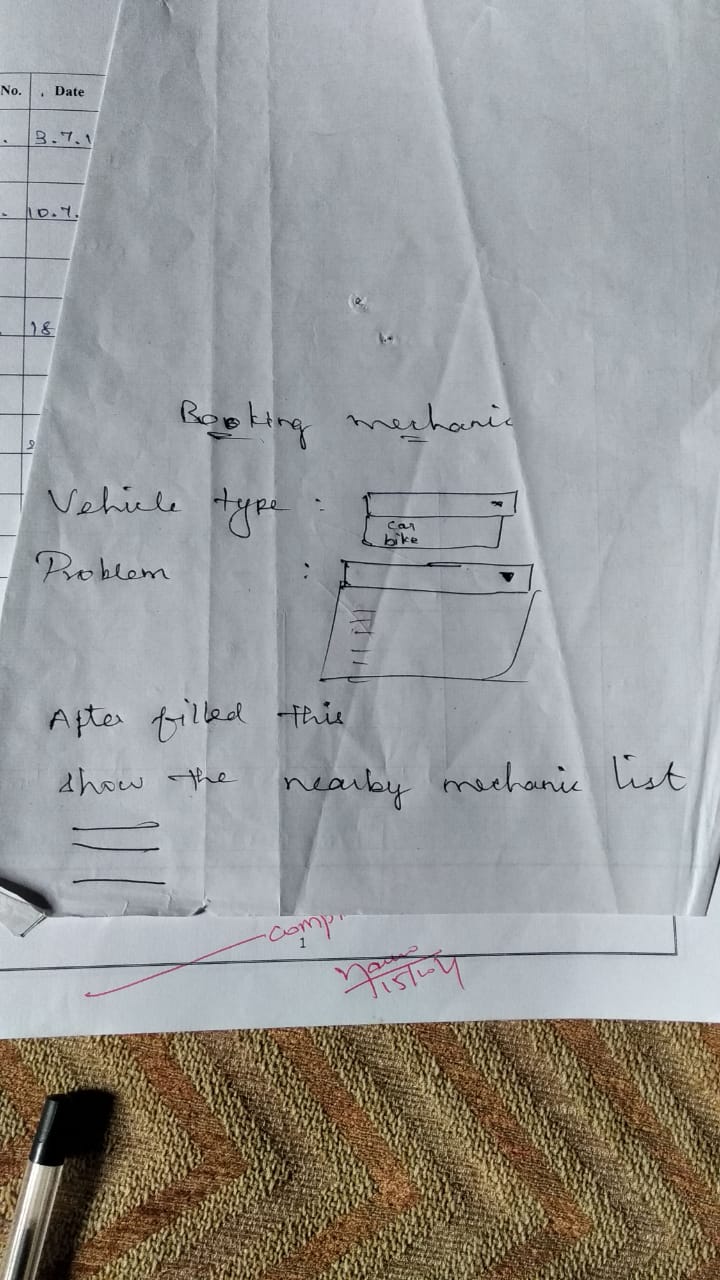 No. Date
3.7.1
10.7.
18
Booking mechanic
Vehicle type :
car
bike
Problem :
After filled this
show the nearby mechanic list
1